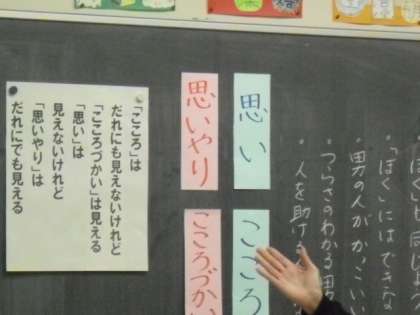 と同じよう
・「ぼく」にはできな
男の人がかっこいい
・つらさのわかる男
・人を助ける
思い
こころ
思いやり
こころづかい
「こころ」は
だれにも見えないけれど
「こころづかい」は見える
「思い」は
見えないけれど
「思いやり」は
だれにでも見える